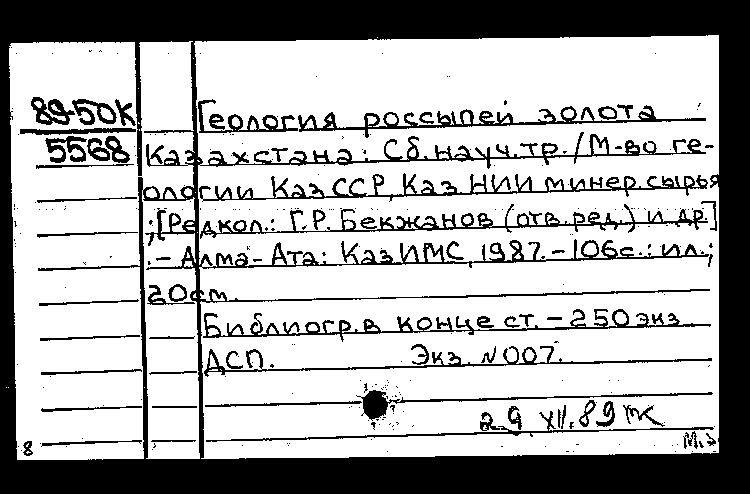 89-50К Геология россыпей золота
5568 Казахстана: Сб. науч. тр. / М-во ге-
ологии КазССР, КазНИИ минер. сырья
; [Редкол.: Г.Р. Бекжанов (отв. ред.) и др.]
. - Алма-Ата: КазИМС, 1987. - 106с.: ил.;
20см.
Библиогр. в конце ст. - 250 экз
ДСП. Экз. N007.
29.XII.89
8